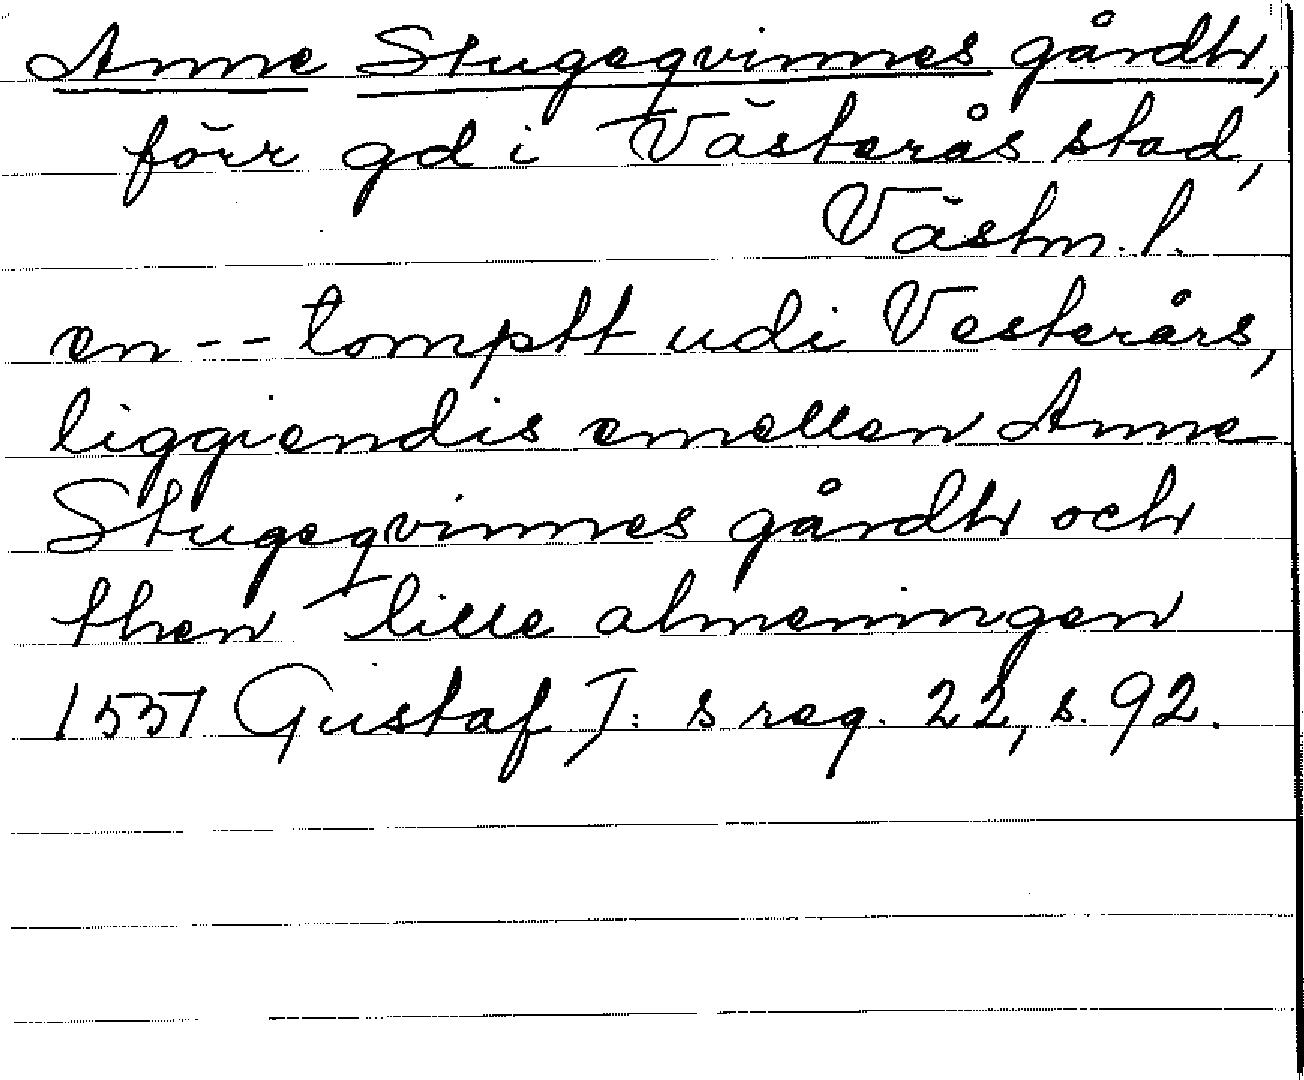 Anne Stugeqvinnes gårdh,
förr gd i Västerås stad,
Västm. l.
en -- tomptt udi Vesterårs,
liggiendis emellen Anne
Stugeqvinnes gårdh och
then lille almeningen
1551 Gustaf I: s reg. 22, s. 92.